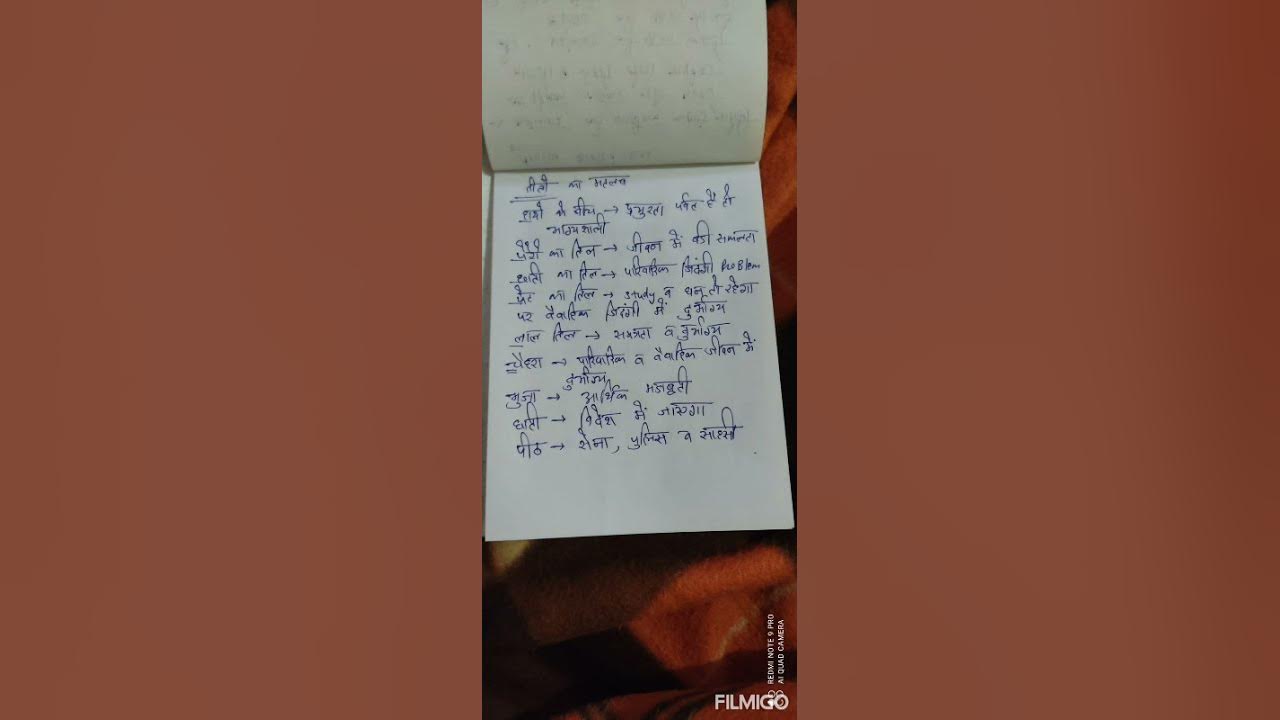 तीलो का मतलब
हाथो के बीच → पर्वत है तो
भाग्यशाली
पैरो का तिल → जीवन में बडी सफलता
छाती का तिल → परिवारिक जिदंगी Problem
पेट का तिल → study व धन तो रहेगा
पर वैवाहिक जिदंगी में दुर्भाग्य
लाल तिल → सपन्नता व दुर्भाग्य
चैहरा → परिवारिक व वैवाहिक जीवन में
दुर्भाग्य
भुजा → आर्थिक मजबुती
छाती → विदेश में जाएगा
पीठ → सेना, पुलिस व साहसी
REDMI NOTE 9 PRO
AI QUAD CAMERA
FILMIGO